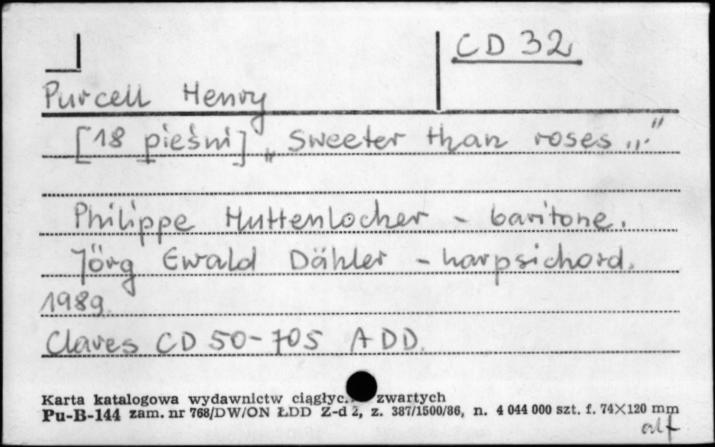 CD 32
Purcell Henry
[18 pieśni] „Sweeter than roses..."
Philippe Huttenlocher - baritone.
Jörg Ewald Dähler - harpsichord.
1989.
Claves CD 50-705 ADD.
Karta katalogowa wydawnictw ciągłyc. zwartych
Pu-B-144 zam. nr 768/DW/ON ŁDD Z-d 2, z. 387/1500/86, n. 4 044 000 szt. f. 74×120 mm
alf